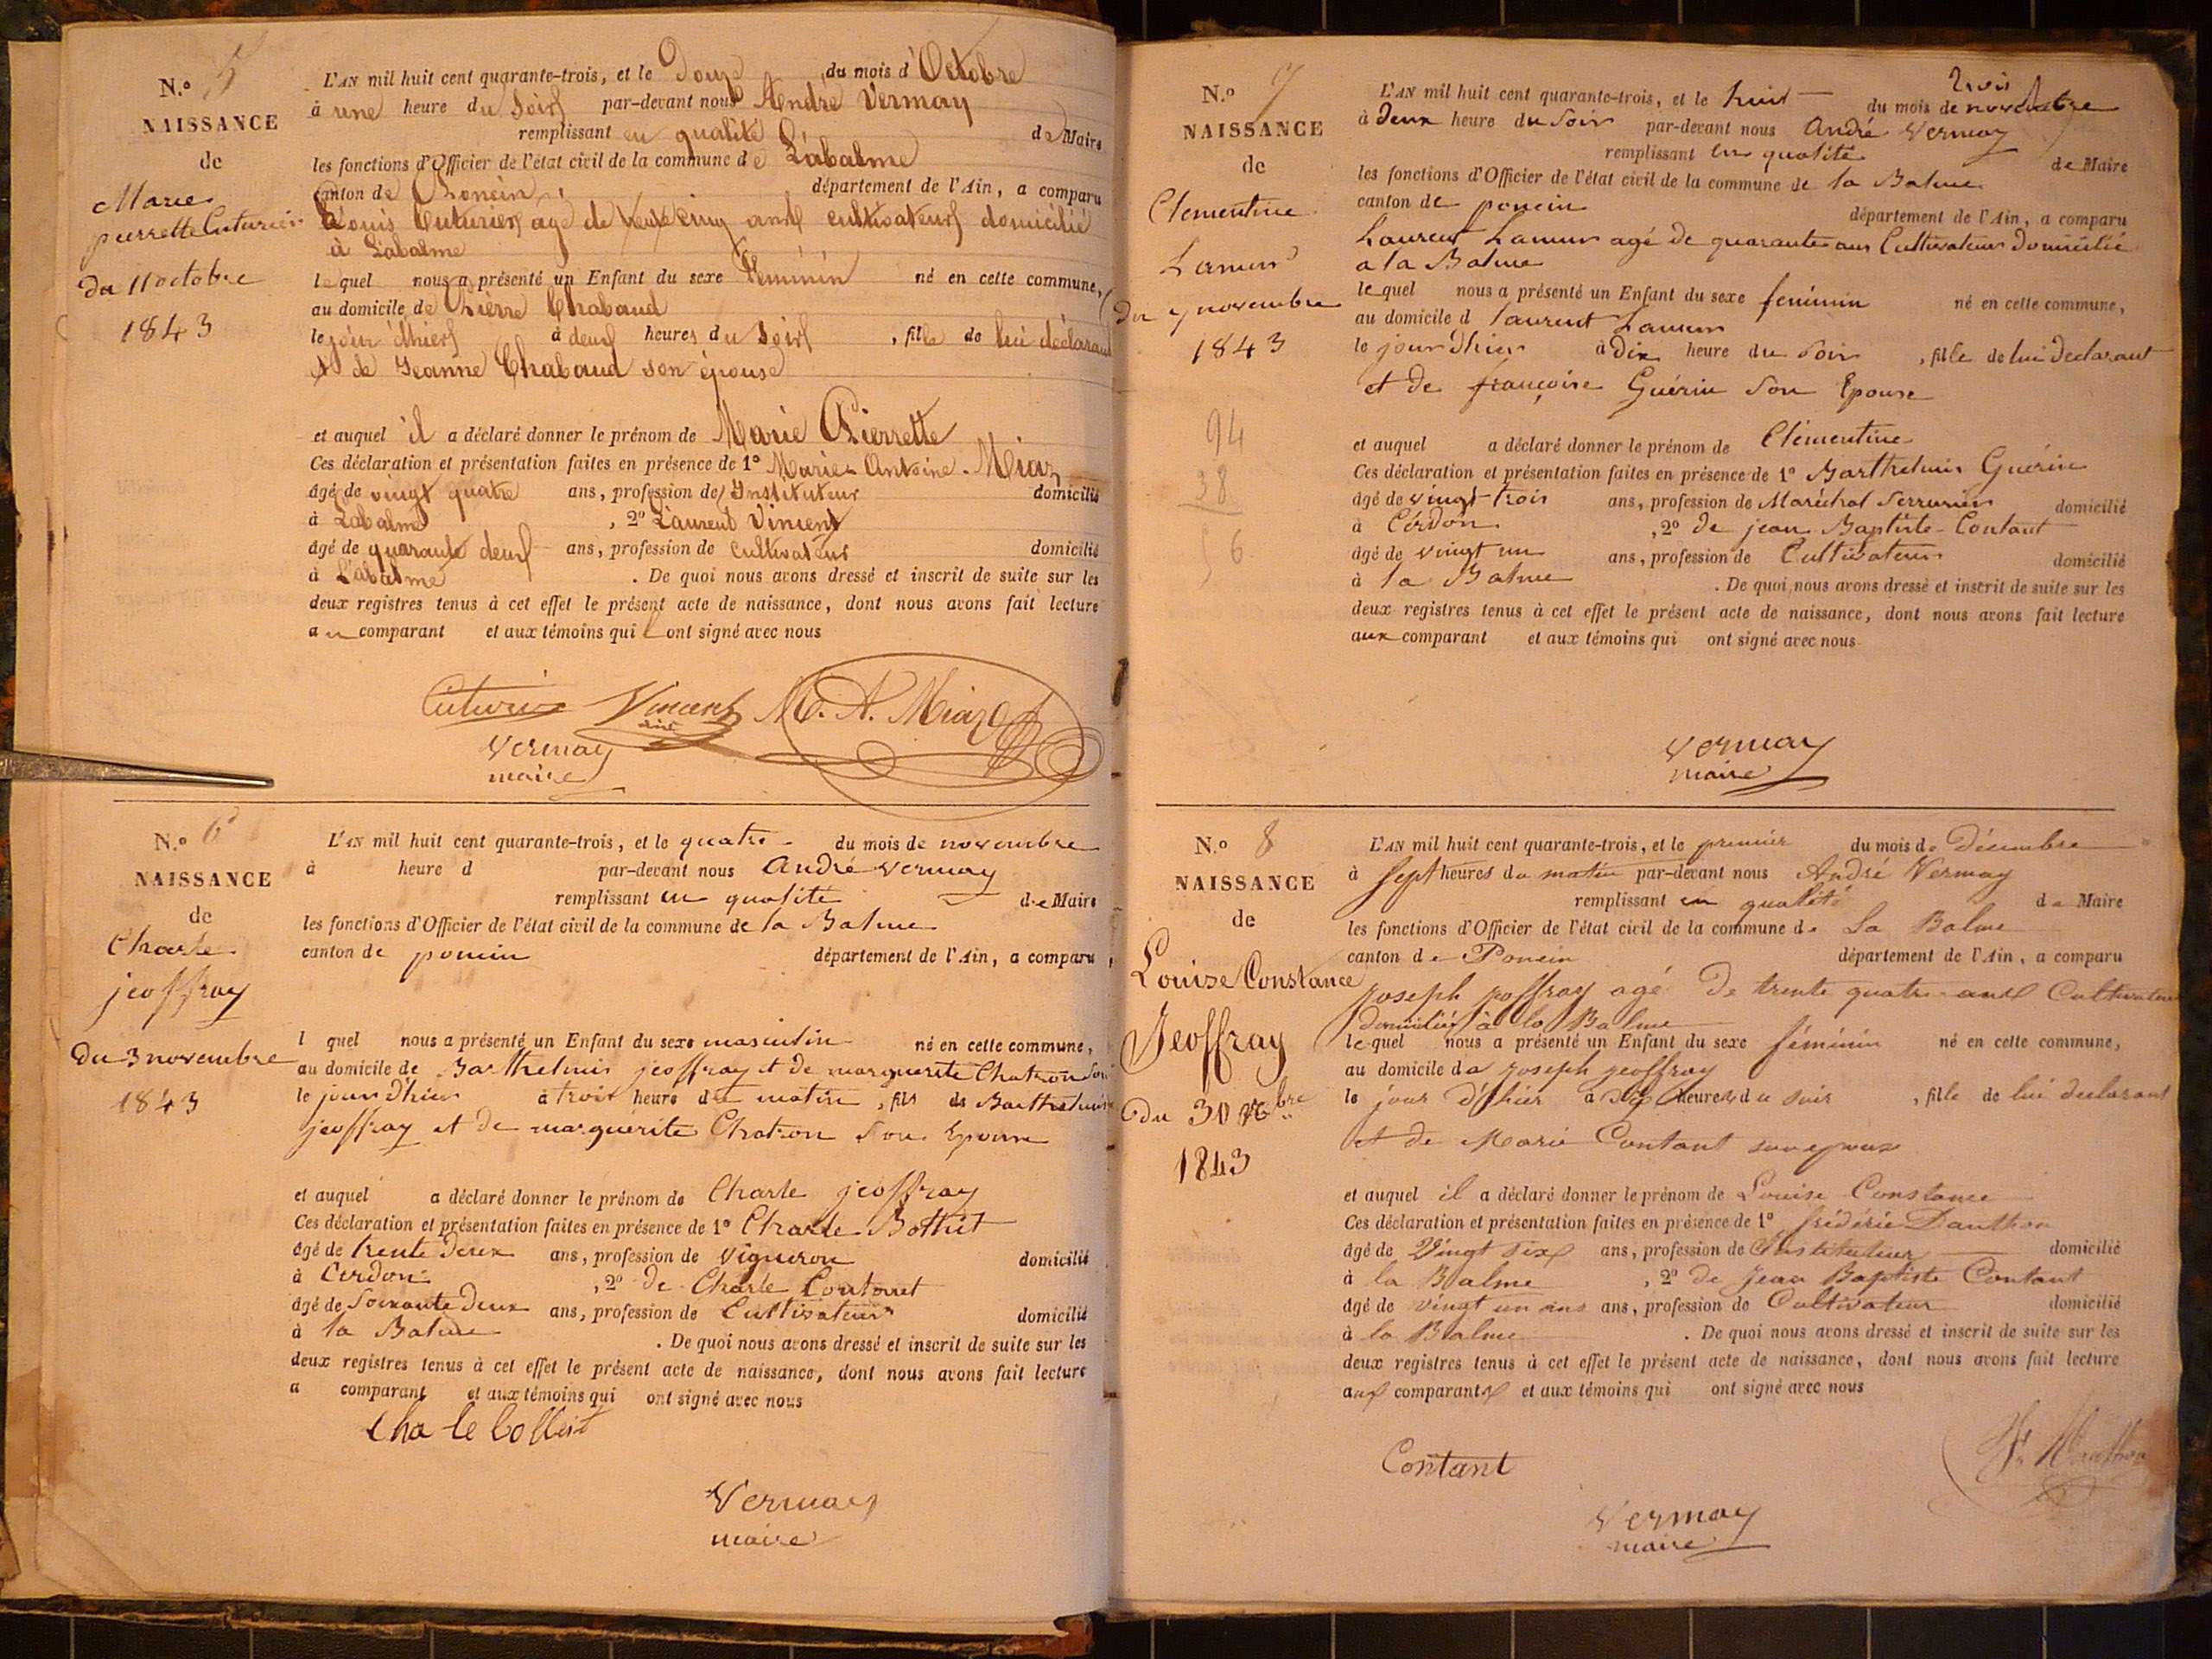 N.o 5
NAISSANCE
de
Marie
pierrette Cuturier
du 11 octobre
1843
L'AN mil huit cent quarante-trois, et le Douze du mois d'Octobre
à une heure du Soir par-devant nous André Vermay
remplissant en qualité de Maire
les fonctions d'Officier de l'état civil de la commune de Labalme
canton de Poncin, département de l'Ain, a comparu
Louis Cuturier agé de cinq ans cultivateur domicilié
à Labalme
le quel nous a présenté un Enfant du sexe Feminin né en cette commune,
au domicile de Pierre Chabaud
le jour d'hier à deux heures du Soir, fille de lui déclarant
et de Jeanne Chabaud son épouse
et auquel il a déclaré donner le prénom de Marie Pierrette
Ces déclaration et présentation faites en présence de 1º Marie Antoine Miaz
âgé de vingt quatre ans, profession de Instituteur domicilié
à Labalme, 2º Laurent Vincent
âgé de quarante deux ans, profession de Cultivateur domicilié
à Labalme. De quoi nous avons dressé et inscrit de suite sur les
deux registres tenus à cet effet le présent acte de naissance, dont nous avons fait lecture
au comparant et aux témoins qui ont signé avec nous
Cuturier Vincent M. A. Miaz
Vermay
maire
N.o 6
NAISSANCE
de
Charle
jeoffray
du 3 novembre
1843
L'AN mil huit cent quarante-trois, et le quatre du mois de novembre
à heure d par-devant nous André Vermay
remplissant en qualité de Maire
les fonctions d'Officier de l'état civil de la commune de la Balme
canton de poncin département de l'Ain, a comparu
l quel nous a présenté un Enfant du sexe masculin né en cette commune,
au domicile de Barthelmis jeoffray et de marguerite Chatron son
le jour d'hier à trois heure du matin, fils de Barthelmis
jeoffray et de marguerite Chatron Son Epouse
et auquel a déclaré donner le prénom de Charle jeoffray
Ces déclaration et présentation faites en présence de 1º Charle Bottet
âgé de trente Deux ans, profession de Vigneron domicilié
à Cerdon, 2º de Charle Contant
âgé de Soixante Deux ans, profession de Cultivateur domicilié
à la Balme. De quoi nous avons dressé et inscrit de suite sur les
deux registres tenus à cet effet le présent acte de naissance, dont nous avons fait lecture
a comparant et aux témoins qui ont signé avec nous
Vermay
maire
N.o 7
NAISSANCE
de
Clementine
Lamur
du 7 novembre
1843
94
38
56
L'AN mil huit cent quarante-trois, et le huit du mois de novembre
à Deux heure du Soir par-devant nous André Vermay
remplissant en qualité de Maire
les fonctions d'Officier de l'état civil de la commune de la Balme
canton de poncin département de l'Ain, a comparu
Laurent Lamur agé de quarante ans Cultivateur domicilié
a la Balme
le quel nous a présenté un Enfant du sexe feminin né en cette commune,
au domicile d laurent Lamur
le jour d'hier à Dix heure du Soir, fille de lui declarant
et de françoise Guérin Son Epouse
et auquel a déclaré donner le prénom de Clémentine
Ces déclaration et présentation faites en présence de 1º Barthelmis Guérin
âgé de vingt-trois ans, profession de Maréchal Serrurier domicilié
à Cérdon, 2º de jean Baptiste Contant
âgé de vingt un ans, profession de Cultivateur domicilié
à la Balme. De quoi nous avons dressé et inscrit de suite sur les
deux registres tenus à cet effet le présent acte de naissance, dont nous avons fait lecture
aux comparant et aux témoins qui ont signé avec nous
Vermay
maire
N.o 8
NAISSANCE
de
Louise Constance
Jeoffray
du 30 9bre
1843
L'AN mil huit cent quarante-trois, et le premier du mois de Décembre
à sept heures du matin par-devant nous André Vermay
remplissant en qualité de Maire
les fonctions d'Officier de l'état civil de la commune de La Balme
canton de Poncin département de l'Ain, a comparu
joseph joffray agé de trente quatre ans Cultivateur
domicilié à la Balme
le quel nous a présenté un Enfant du sexe féminin né en cette commune,
au domicile de joseph jeoffray
le jour d'hier à heures du soir, fille de lui declarant
et de Marie Contant son epouse
et auquel il a déclaré donner le prénom de Louise Constance
Ces déclaration et présentation faites en présence de 1º frédéric Danthon
âgé de Vingt Six ans, profession de Instituteur domicilié
à la Balme, 2º de Jean Baptiste Contant
âgé de vingt un ans ans, profession de Cultivateur domicilié
à la Balme. De quoi nous avons dressé et inscrit de suite sur les
deux registres tenus à cet effet le présent acte de naissance, dont nous avons fait lecture
aux comparants et aux témoins qui ont signé avec nous
Contant
Vermay
maire